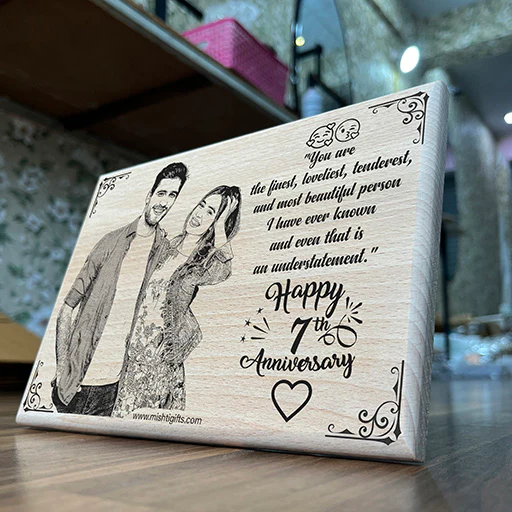 "You are
the finest, loveliest, tenderest,
and most beautiful person
I have ever known
and even that is
an understatement."
Happy
7th
Anniversary
www.mishtigifts.com